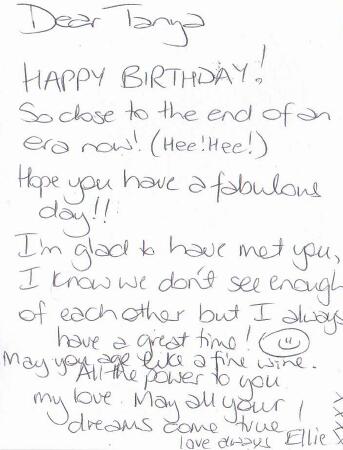 Dear Tanya
HAPPY BIRTHDAY!
So close to the end of an
era now! (Hee!Hee!)
Hope you have a fabulous
day!!
I'm glad to have met you,
I know we don't see enough
of each other but I always
have a great time!
May you age like a fine wine.
All the power to you
my love. May all your
dreams come true!
love always Ellie xxxx